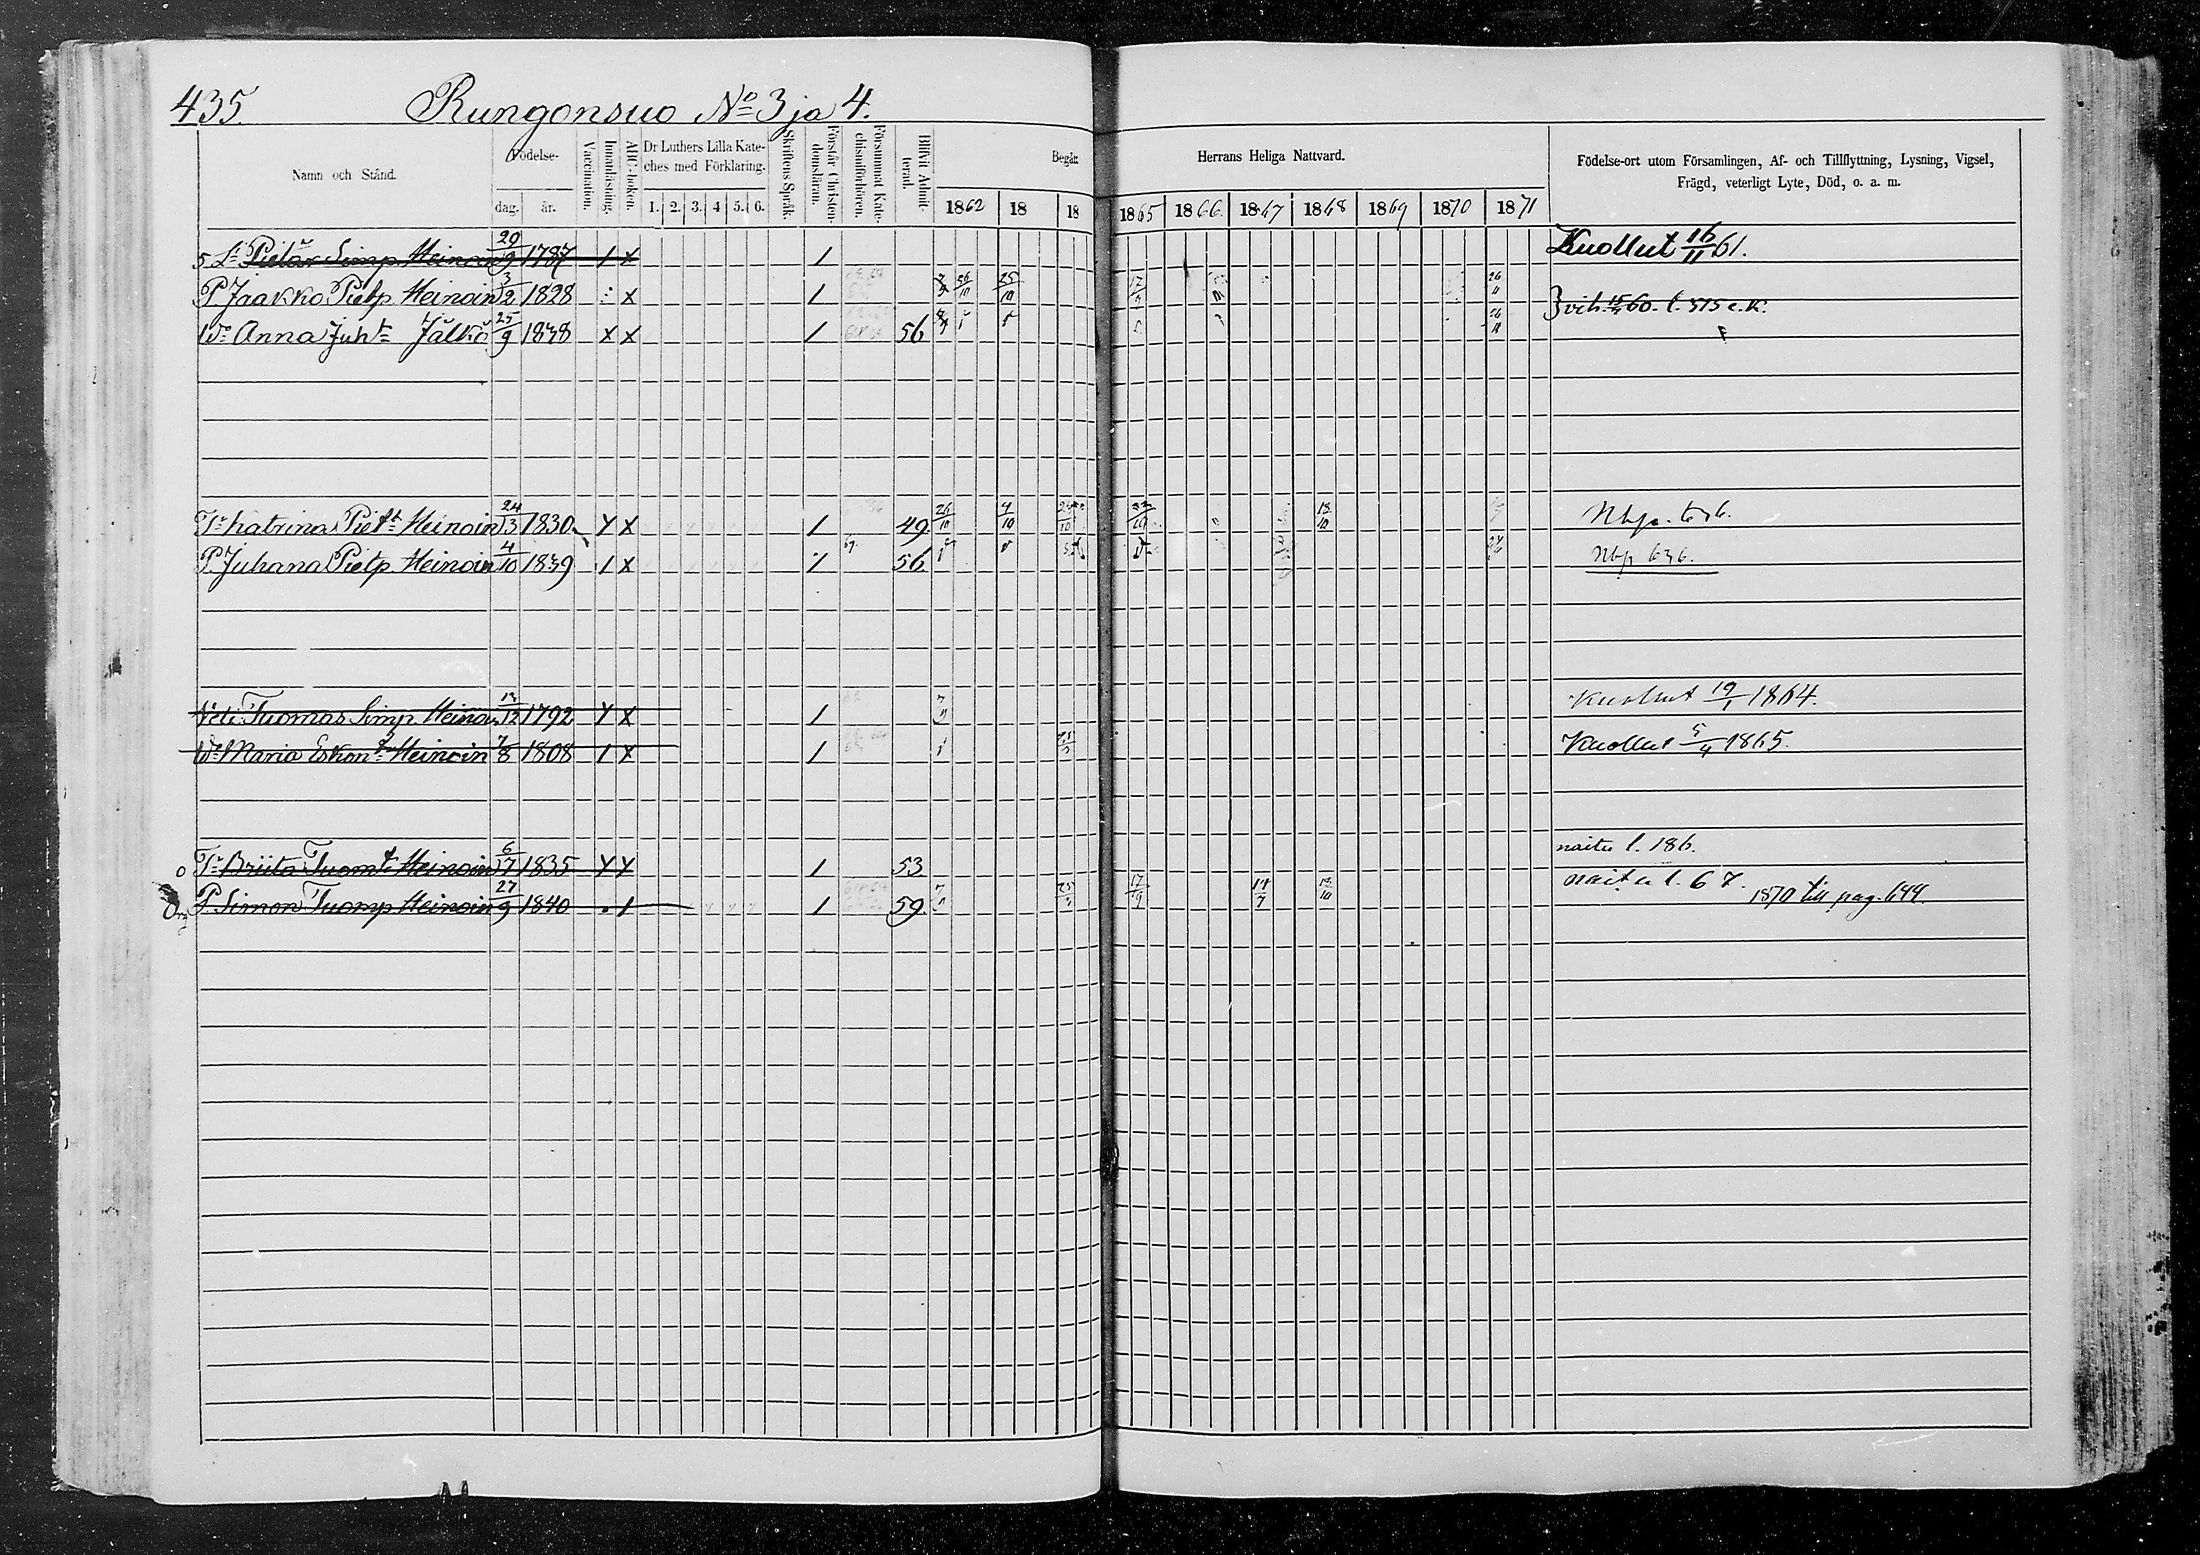 435. Rungonsuo No 3 ja 4.
Namn och Stånd.
Födelse-
dag. år.
Vaccination.
Innanläsning.
ABC-boken.
Dr Luthers Lilla Kate-
ches med Förklaring.
1. 2. 3. 4 5. 6.
Skriftens Språk.
Förstår Christen-
domsläran.
Försummat Kate-
chismiförhören.
Blifvit Admit-
terad.
Begått Herrans Heliga Nattvard.
1862 18 18 1865 1866 1867 1868 1869 1870 1871
Födelse-ort utom Församlingen, Af- och Tillflyttning, Lysning, Vigsel,
Frägd, veterligt Lyte, Död, o. a. m.
Pietar Simp. Heinoin 29/9 1787 1 x 1 Kuollut 16/11 61.
P. Jaakko Pietp. Heinoin 3/2 1828 x 1 26/10 25/10 17/9 26/11 vih. 60. l. 515 c. K.
Wo Anna Juht Jälkö 25/9 1838 x x 1 56 26/11
Tr Katrina Piett Heinoin 24/3 1830 Y x 1 49. 26/10 4/10 22/10 13/10 Nbp. 636.
P. Juhana Pietp. Heinoin 4/10 1839 1 x 1 56 Nbp 636.
Tuomas Simp. Heinoin 13/12 1792 Y x 1 Kuollut 19/1 1864.
Wo Maria Eskont Heinoin 7/8 1808 1 x 1 Kuollut 5/4 1865.
Tr Briita Tuomt Heinoin 6/7 1835 Y Y 1 53 naitu l. 186.
P. Simon Tuomp. Heinoin 27/9 1840 1 1 59. 17/9 14/7 13/10 naitu l. 67.
1870 till pag. 644.